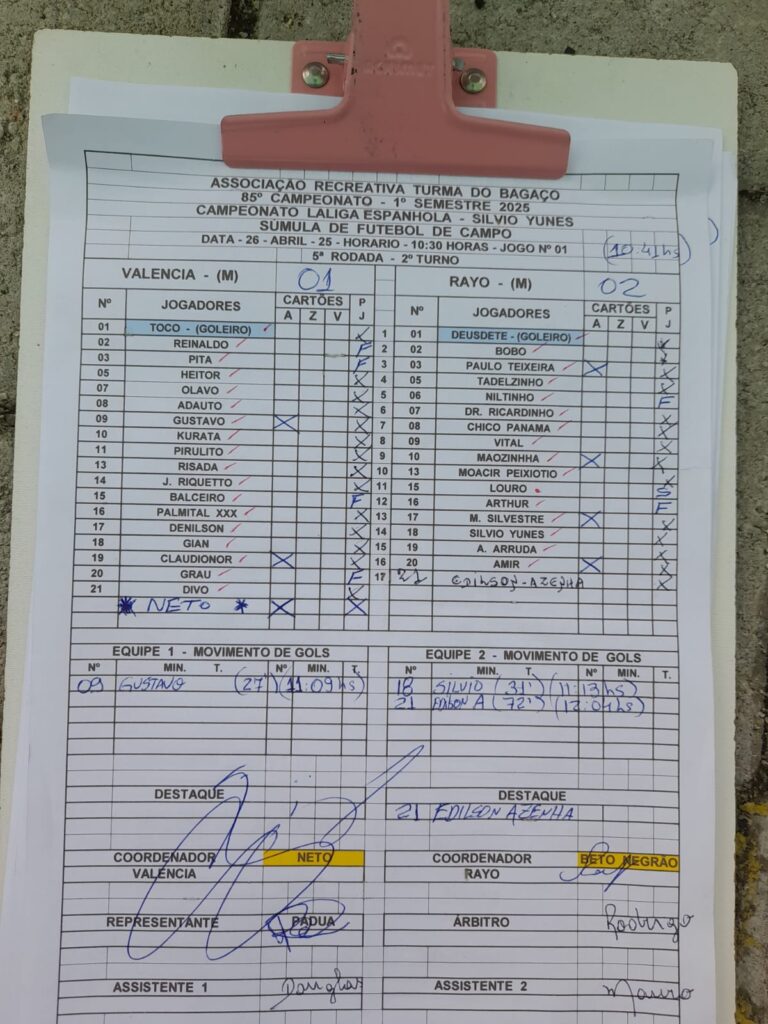 ASSOCIAÇÃO RECREATIVA TURMA DO BAGAÇO
85º CAMPEONATO - 1º SEMESTRE 2025
CAMPEONATO LALIGA ESPANHOLA - SILVIO YUNES
SÚMULA DE FUTEBOL DE CAMPO
DATA - 26 - ABRIL - 25 - HORARIO - 10:30 HORAS - JOGO Nº 01 (10:41hs)
5ª RODADA - 2º TURNO
VALENCIA - (M) 01 RAYO - (M) 02
Nº JOGADORES CARTÕES A Z V P J Nº JOGADORES CARTÕES A Z V P J
01 TOCO - (GOLEIRO) X 1 01 DEUSDETE - (GOLEIRO) X
02 REINALDO F 2 02 BOBO X
03 PITA F 3 03 PAULO TEIXEIRA X X
05 HEITOR X 4 05 TADELZINHO X
07 OLAVO X 5 06 NILTINHO F
08 ADAUTO X 6 07 DR. RICARDINHO X
09 GUSTAVO X X 7 08 CHICO PANAMA X
10 KURATA X 8 09 VITAL X
11 PIRULITO X 9 10 MAOZINHHA X X
13 RISADA X 10 13 MOACIR PEIXIOTIO X
14 J. RIQUETTO X 11 15 LOURO S
15 BALCEIRO F 12 16 ARTHUR F
16 PALMITAL XXX X 13 17 M. SILVESTRE X X
17 DENILSON X 14 18 SILVIO YUNES X
18 GIAN X 15 19 A. ARRUDA X
19 CLAUDIONOR X X 16 20 AMIR X X
20 GRAU F 17 21 EDILSON-AZENHA X
21 DIVO X
* NETO * X X
EQUIPE 1 - MOVIMENTO DE GOLS EQUIPE 2 - MOVIMENTO DE GOLS
Nº MIN. T. Nº MIN. T. Nº MIN. T. Nº MIN. T.
09 GUSTAVO (27') (11:09hs) 18 SILVIO (31') (11:13hs)
21 EDILSON A (72') (12:04hs)
DESTAQUE DESTAQUE
21 EDILSON AZENHA
COORDENADOR VALÊNCIA NETO COORDENADOR RAYO BETO NEGRÃO
REPRESENTANTE PÁDUA ÁRBITRO Rodrigo
ASSISTENTE 1 Douglas ASSISTENTE 2 Mauro